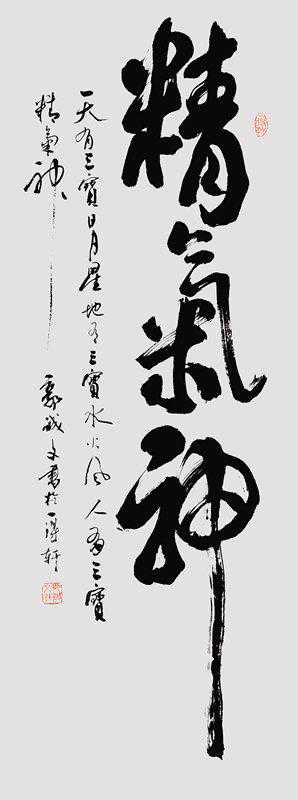 精氣神
天有三寶日月星地有三寶水火風人有三寶
精氣神
文書於一軒